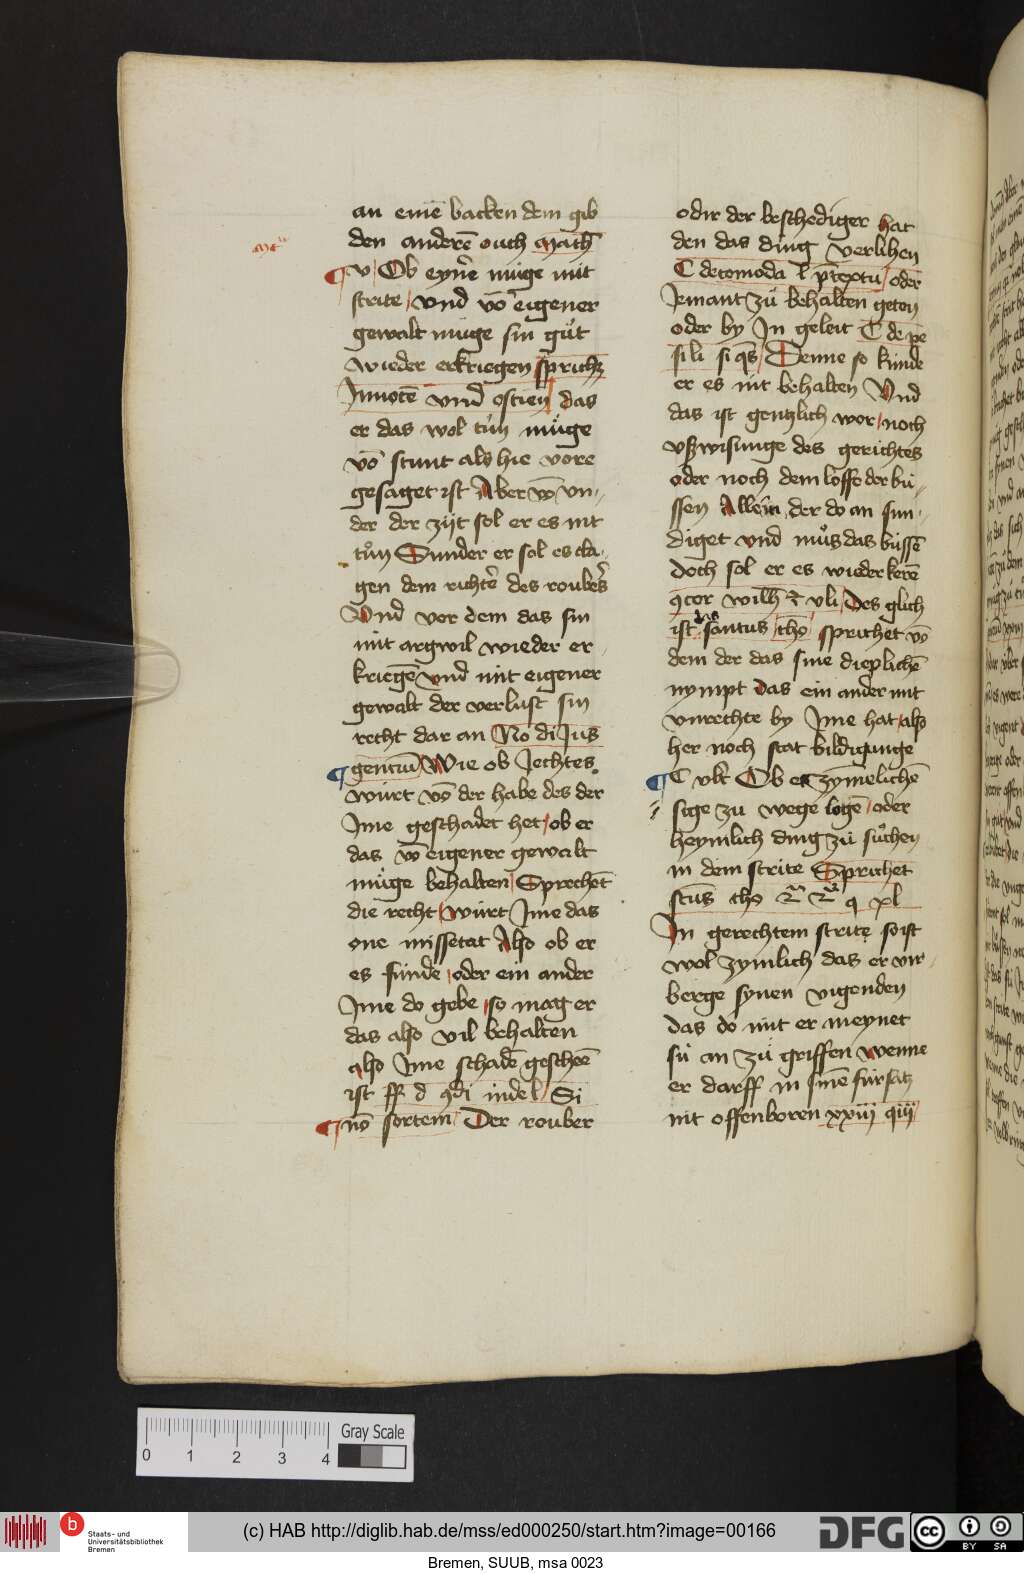 an einē backen dem gib
den anderē ouch math̄
v Ob eyn̄e muͤge mit
strite vnd vō eigener
gewalt muge sin guͤt
wieder erkriegen sprichꝫ
Innocē vnd ostien das
er das wol tuͦn muͤge
vō stunt als hie vore
gesaget ist Aber vō vn-
der der zijt sol er es nit
tuͦn Sunder er sol es cla-
gen dem richtē des roubeŝ
Vnd vor dem das sin
mit argwil wieder er-
kriegē vnd mit eigener
gewalt der verlust sin
recht dar an No di Jus
genciū Wie ob Jechtes
wurt vō der habe des der
Jme geschadet het ob er
das vō eigener gewalt
muͤge behalten Sprechēt
die recht wurt Jme das
one missetat Also ob er
es funde oder ein ander
Jme do gebe so mag er
das also vil behalten
also Jme schadē gescheē
ist ff d 9di inde l Si
nō sortem Der rouber
odir der beschediger hat
den das ding verlihen
C de comoda l p̄textu oder
Jemant zuͤ behalten geton
oder by Jn geleit C de pe
si li si q̄s Denne so kunde
er es nit behalten Vnd
das ist gentzlich wor noch
vßwisunge des gerichtes
oder noch dem loffe der bu-
ssen Allein der do an sun-
diget vnd muͦs das bussē
doch sol er es wieder kerē
9cor wilh̄ ꝛ vli Des glich
ist das santus tho sprichet vō
dem der das sine dieplichē
nympt das ein ander mit
vnrechte by Jme hat also
her noch stat bildigunge
C vlt Ob es zymelichē
sige zu wege logē oder
heymlich ding zuͤ suͦchen
in dem strite Sprichet
sctūs tho 2ᵃ 2ᵉ q xl
Jn gerechtem strite so ist
wol zymlich das er vir-
berge synen vigenden
das do mit er meynet
su an zuͤ griffen wenne
er darff in sinē fursatz
nit offenboren xxiij qiij
0 1 2 3 4
Gray Scale
b
Staats- und
Universitätsbibliothek
Bremen
(c) HAB http://diglib.hab.de/mss/ed000250/start.htm?image=00166
DFG
cc BY SA
Bremen, SUUB, msa 0023